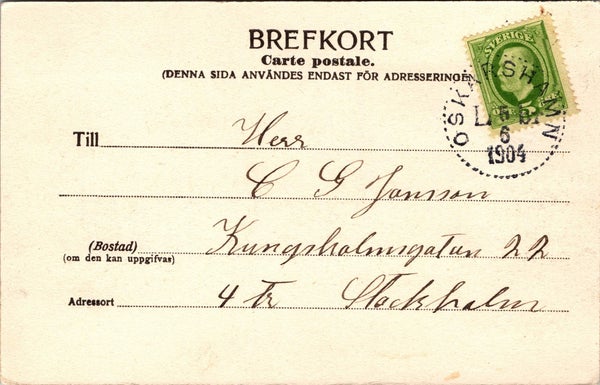 BREFKORT
Carte postale.
(DENNA SIDA ANVÄNDES ENDAST FÖR ADRESSERINGEN
SVERIGE
5
OSKARSHAMN
6
1904
Till
Herr
C G Jonsson
(Bostad)
(om den kan uppgifvas)
Kungsholmsgatan 22
Adressort
4 tr Stockholm